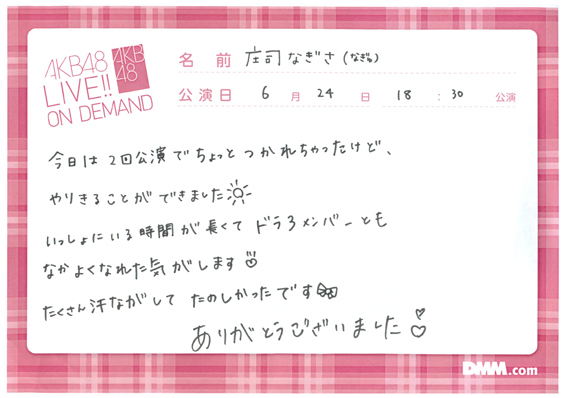 AKB48
LIVE!!
ON DEMAND
AKB
48
名前 庄司なぎさ(なぎゅ)
公演日 6月24日 18:30 公演
今日は2回公演でちょっとつかれちゃったけど、
やりきることができました
いっしょにいる時間が長くてドラ3メンバーとも
なかよくなれた気がします
たくさん汗ながして たのしかったです
ありがとうございました
DMM.com